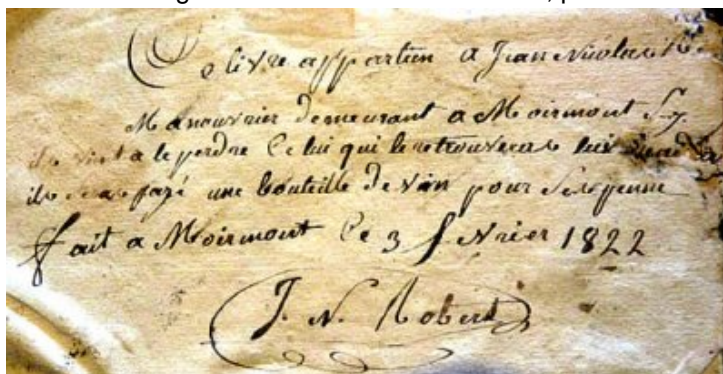 Ce livre appartien a Jean Nicolas R.
Manouvrier demeurant a Moirmont Sy
ils vient a le perdre Celui qui le retrouveras lui
ils seras payé une bouteille de vin pour Ses penne
fait a Moirmont Ce 3 fevrier 1822
J. N. Robert